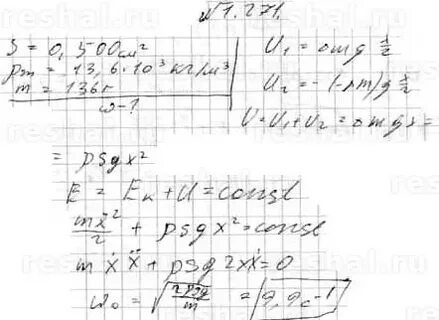 √1.271.
S = 0,500 см²
ρm = 13,6·10³ кг/м³
m = 136 г
ω - ?
U₁ = Δmg x/2
U₂ = -(-Δm)g x/2
U = U₁ + U₂ = Δmgx =
= ρsgx²
E = Eк + U = const
mẋ²/2 + ρsgx² = const
mẋẍ + ρsg2xẋ = 0
ω₀ = √(2ρsg/m) = 9,9 с⁻¹